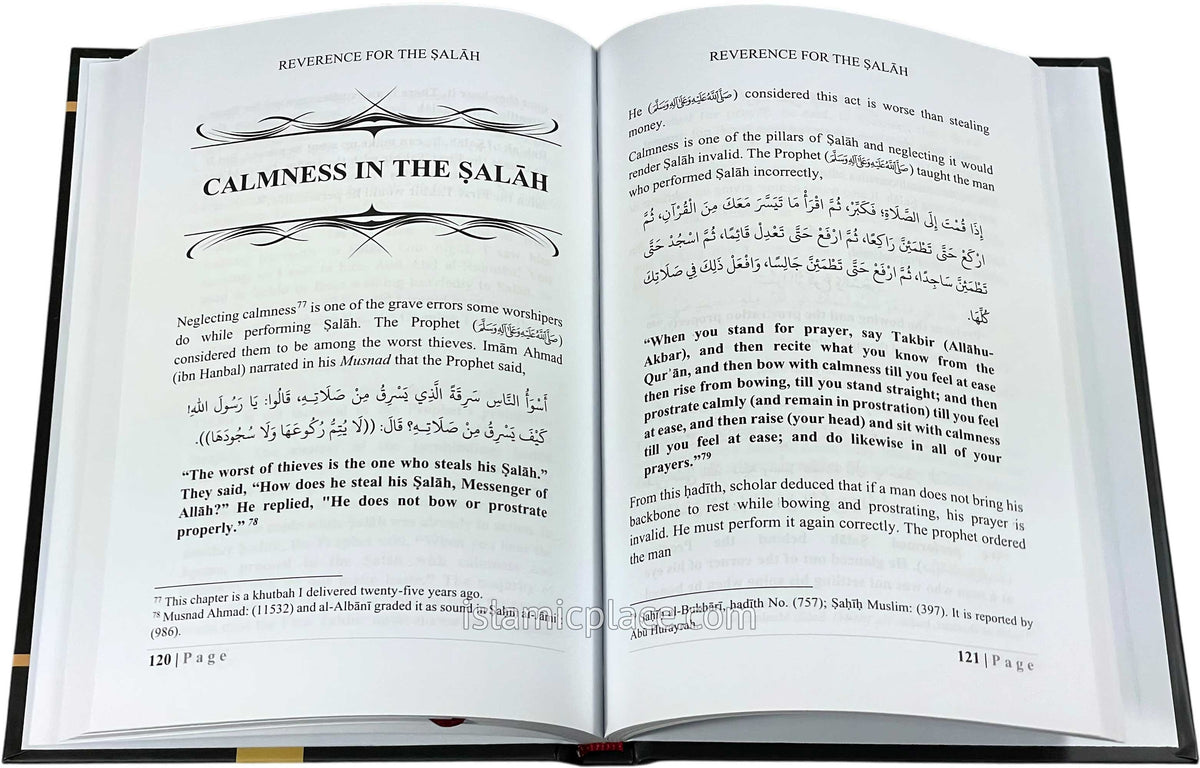 REVERENCE FOR THE ṢALĀH
CALMNESS IN THE ṢALĀH
Neglecting calmness⁷⁷ is one of the grave errors some worshipers
do while performing Ṣalāh. The Prophet (ﷺ)
considered them to be among the worst thieves. Imām Ahmad
(ibn Hanbal) narrated in his Musnad that the Prophet said,
أَسْوَأُ النَّاسِ سَرِقَةً الَّذِي يَسْرِقُ مِنْ صَلَاتِهِ، قَالُوا: يَا رَسُولَ اللهِ!
كَيْفَ يَسْرِقُ مِنْ صَلَاتِهِ؟ قَالَ: ((لَا يُتِمُّ رُكُوعَهَا وَلَا سُجُودَهَا)).
“The worst of thieves is the one who steals his Ṣalāh.”
They said, “How does he steal his Ṣalāh, Messenger of
Allāh?” He replied, "He does not bow or prostrate
properly.” ⁷⁸
⁷⁷ This chapter is a khutbah I delivered twenty-five years ago.
⁷⁸ Musnad Ahmad: (11532) and al-Albānī graded it as sound in
(986).
120 | Page
REVERENCE FOR THE ṢALĀH
He (ﷺ) considered this act is worse than stealing
money.
Calmness is one of the pillars of Ṣalāh and neglecting it would
render Ṣalāh invalid. The Prophet (ﷺ) taught the man
who performed Ṣalāh incorrectly,
إِذَا قُمْتَ إِلَى الصَّلَاةِ؛ فَكَبِّرْ، ثُمَّ اقْرَأْ مَا تَيَسَّرَ مَعَكَ مِنَ الْقُرْآنِ، ثُمَّ
ارْكَعْ حَتَّى تَطْمَئِنَّ رَاكِعًا، ثُمَّ ارْفَعْ حَتَّى تَعْدِلَ قَائِمًا، ثُمَّ اسْجُدْ حَتَّى
تَطْمَئِنَّ سَاجِدًا، ثُمَّ ارْفَعْ حَتَّى تَطْمَئِنَّ جَالِسًا، وَافْعَلْ ذَلِكَ فِي صَلَاتِكَ
كُلِّهَا.
“When you stand for prayer, say Takbir (Allāhu-
Akbar), and then recite what you know from the
Qurʾān, and then bow with calmness till you feel at ease
then rise from bowing, till you stand straight; and then
prostrate calmly (and remain in prostration) till you feel
at ease, and then raise (your head) and sit with calmness
till you feel at ease; and do likewise in all of your
prayers.”⁷⁹
From this ḥadīth, scholar deduced that if a man does not bring his
backbone to rest while bowing and prostrating, his prayer is
invalid. He must perform it again correctly. The prophet ordered
the man
al-Bukhārī, ḥadīth No. (757); Ṣaḥīḥ Muslim: (397). It is reported by
Abū Hurayrah.
121 | Page
islamicplace.com